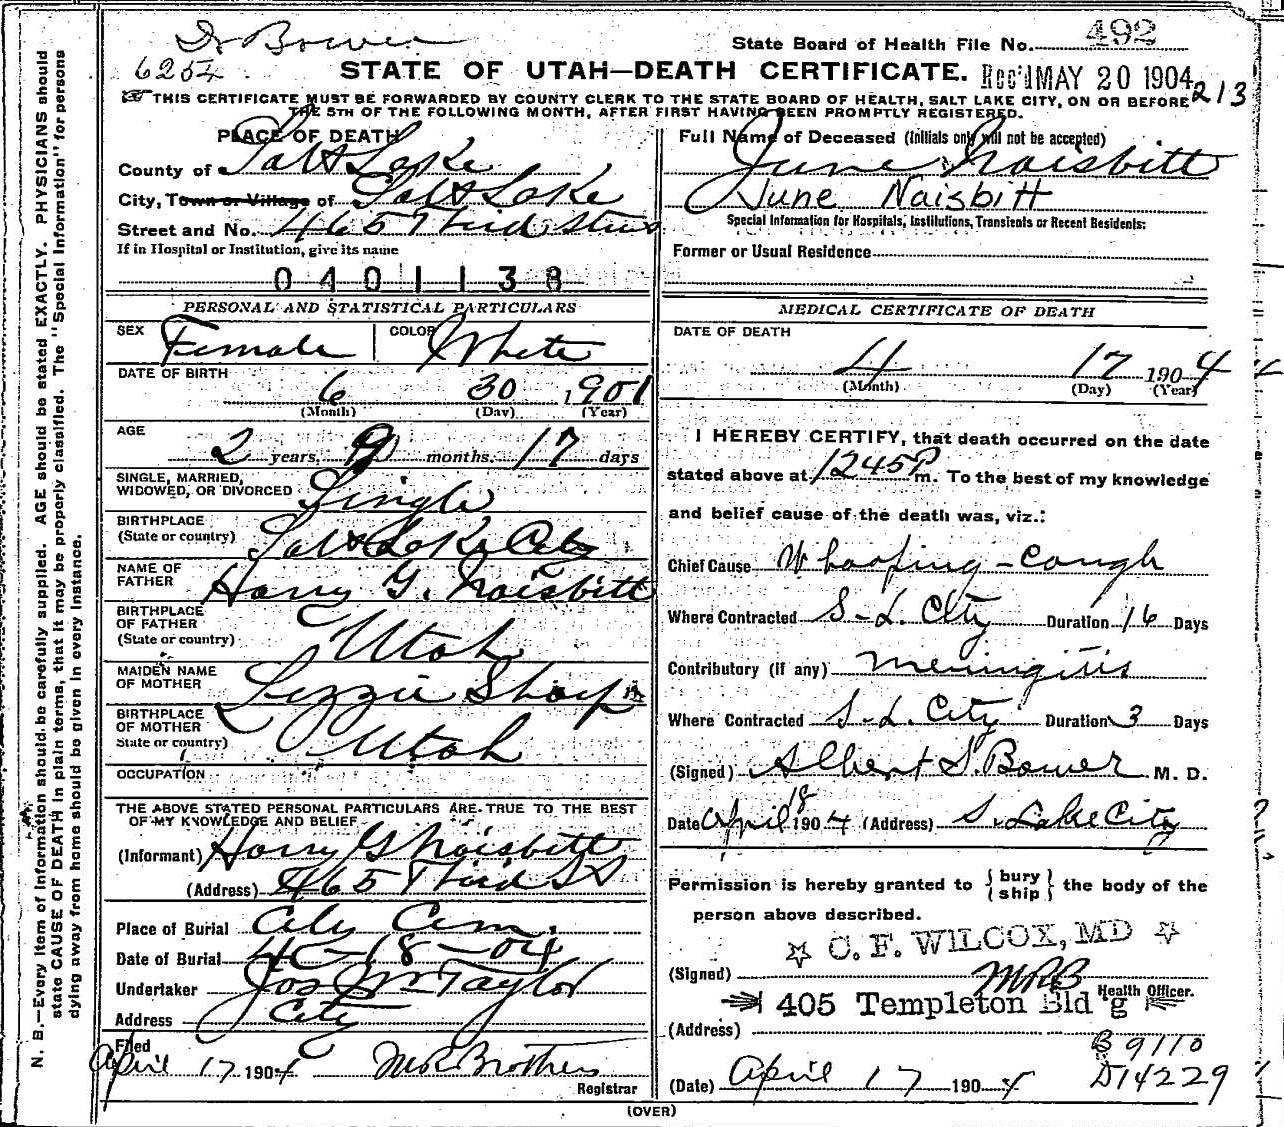 Dr Bower
6254
State Board of Health File No. 492
STATE OF UTAH—DEATH CERTIFICATE. Rec'd MAY 20 1904 213
THIS CERTIFICATE MUST BE FORWARDED BY COUNTY CLERK TO THE STATE BOARD OF HEALTH, SALT LAKE CITY, ON OR BEFORE
THE 5TH OF THE FOLLOWING MONTH, AFTER FIRST HAVING BEEN PROMPTLY REGISTERED.
PLACE OF DEATH
County of Salt Lake
City, Town or Village of Salt Lake
Street and No. 465 Third Street
If in Hospital or Institution, give its name
0401138
PERSONAL AND STATISTICAL PARTICULARS
SEX Female COLOR White
DATE OF BIRTH
6 30 1901
(Month) (Day) (Year)
AGE
2 years, 9 months, 17 days
SINGLE, MARRIED,
WIDOWED, OR DIVORCED Single
BIRTHPLACE
(State or country) Salt Lake City
NAME OF
FATHER Harry G. Naisbitt
BIRTHPLACE
OF FATHER
(State or country) Utah
MAIDEN NAME
OF MOTHER Lizzie Sharp
BIRTHPLACE
OF MOTHER
State or country) Utah
OCCUPATION
THE ABOVE STATED PERSONAL PARTICULARS ARE TRUE TO THE BEST
OF MY KNOWLEDGE AND BELIEF
(Informant) Harry G Naisbitt
(Address) 465 Third St
Place of Burial City Cem.
Date of Burial 4-18-04
Undertaker Jos Wm Taylor
Address City
Filed
April 17 1904 M R Brothers
Registrar
Full Name of Deceased (Initials only will not be accepted)
June Naisbitt
June Naisbitt
Special Information for Hospitals, Institutions, Transients or Recent Residents:
Former or Usual Residence
MEDICAL CERTIFICATE OF DEATH
DATE OF DEATH
4 17 1904
(Month) (Day) (Year)
I HEREBY CERTIFY, that death occurred on the date
stated above at 1245 P m. To the best of my knowledge
and belief cause of the death was, viz.:
Chief Cause Whooping-Cough
Where Contracted S-L. City Duration 16 Days
Contributory (if any) Meningitis
Where Contracted S.L. City Duration 3 Days
(Signed) Albert S. Bower M. D.
Date April 18 1904 (Address) S. Lake City
Permission is hereby granted to { bury ship } the body of the
person above described.
C. F. WILCOX, MD
(Signed) MRB Health Officer.
405 Templeton Bld'g
(Address)
B 9110
(Date) April 17 1904 D14229
(OVER)
N. B.—Every item of information should be carefully supplied. AGE should be stated EXACTLY. PHYSICIANS should
state CAUSE OF DEATH in plain terms, that it may be properly classified. The "Special Information" for persons
dying away from home should be given in every instance.